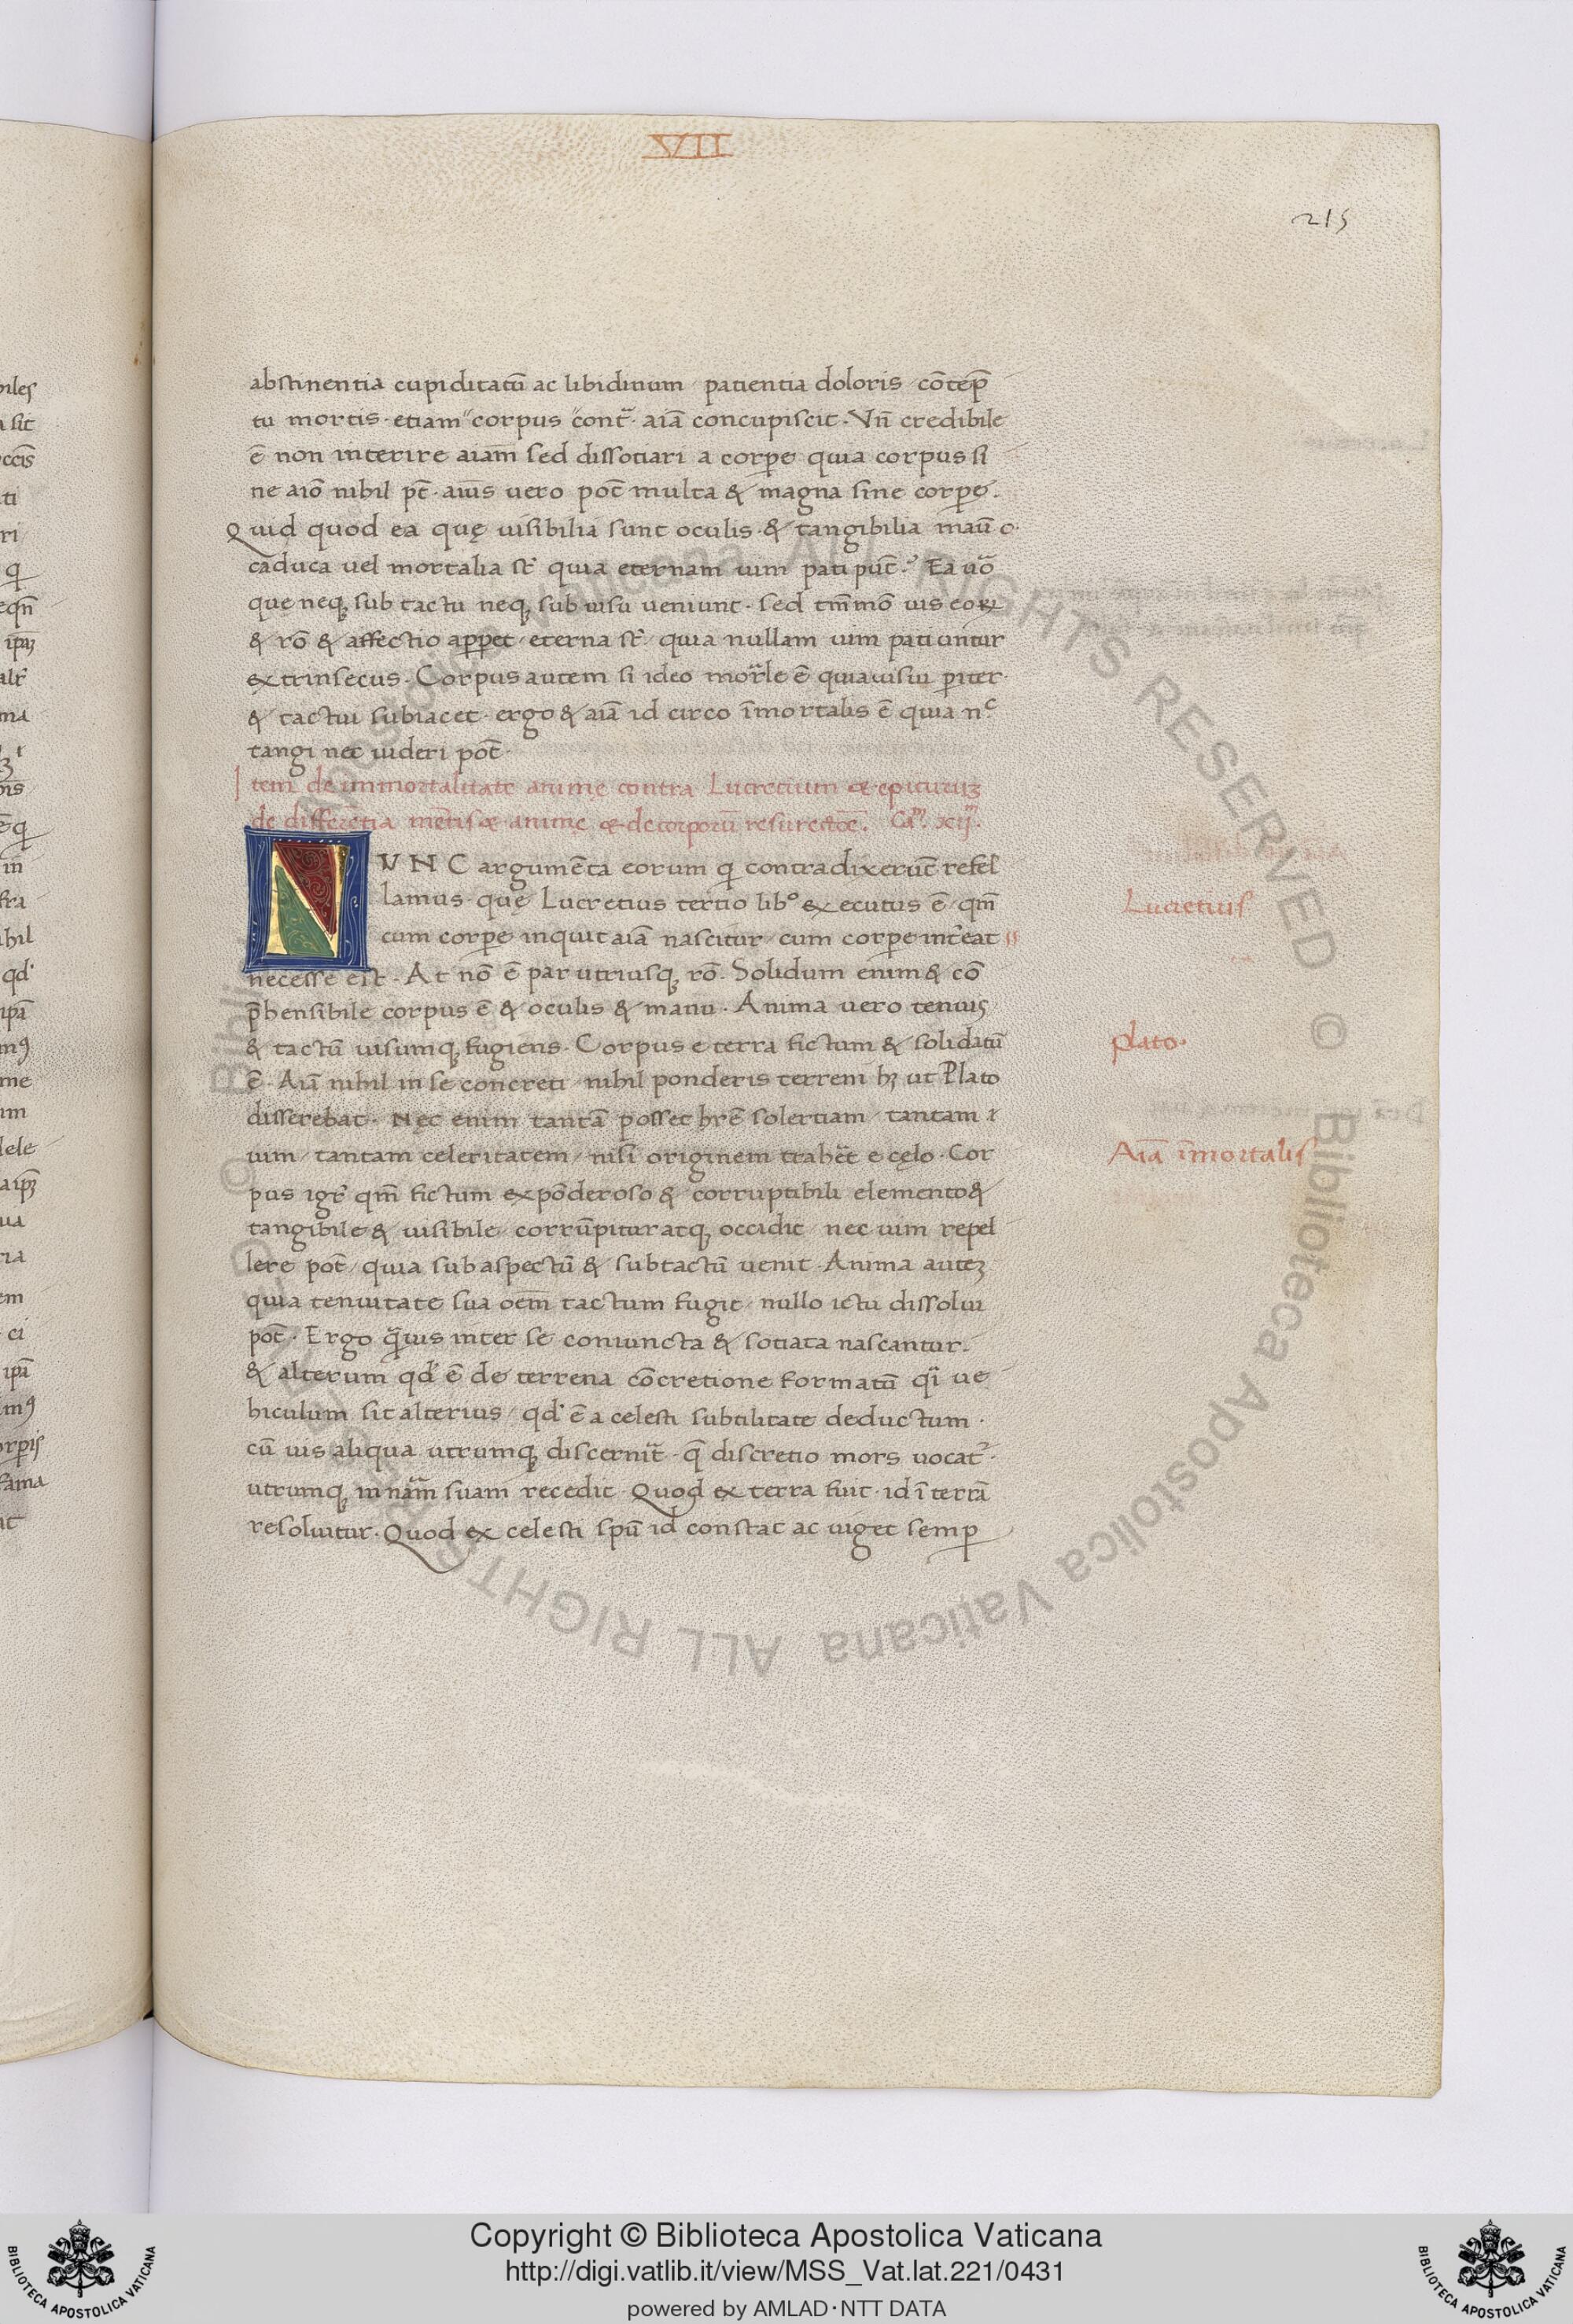 VII
215
abstinentia cupiditatū ac libidinum patientia doloris cōtēp
tu mortis · etiam corpus contͣ aīā concupiscit · Vn̄ credibile
ē non interire aīam sed dissotiari a corpe quia corpus si
ne aīo nihil pt̄ · aīus vero pot̄ multa & magna sine corpe ·
Quid quod ea quę uisibilia sunt oculis · & tangibilia
caduca uel mortalia st̄ quia eternam uim pati pn̄t · Ea uͦo
que neq; sub tactu neq; sub uisu ueniunt · sed tm̄mō uis eoꝝ
& rō & affectio apparet eterna st̄ quia nullam uim patiuntur
extrinsecus · Corpus autem si ideo morͣle ē quia uisui pariter
& tactui subiacet · ergo & aīā id circo īmortalis ē quia nͨ
tangi nec uideri pot̄ ·
Item de immortalitate animę contra Lucretium & epicurum
de differētia mētis & anime & de corporū resurectōe · Caͫ · xijͫ ·
NVNC argumēta eorum q̄ contradixerūt refel
lamus · quę Lucretius tertio libͦ executus ē qm̄
cum corpe inquit aīā nascitur cum corpe int̄eat
necesse est · At nō ē par utriusq; rō · Solidum enim & cō
p̄hensibile corpus ē & oculis & manu · Anima vero tenuis
& tactū uisumq; fugiens · Corpus e terra fictum & solidatū
ē · Aīā nihil in se concreti nihil ponderis terreni hꝫ ut Plato
disserebat · Nęc enim tantā posset hr̄e solertiam tantam
uim tantam celeritatem nisi originem trahēt e cęlo · Cor
pus igͬ qm̄ fictum ex pōderoso & corruptibili elemento &
tangibile & uisibile corrūpitur atq; occidit nec uim repel
lere pot̄ quia sub aspectū & sub tactū uenit · Anima autēꝫ
quia tenuitate sua oēm tactum fugit nullo ictu dissolui
pot̄ · Ergo qͣuis inter se coniuncta & sotiata nascantur ·
& alterum qd̓ ē de terrena cōcretione formatū qͣi ue
hiculum sit alterius qd̓ ē a celesti subtilitate deductum ·
cū uis aliqua utrumq; discernit · q̄ discretio mors uocatͬ ·
utrumq; in nͣam suam recedit · Quod ex terra fuit · id ī terrā
resoluitur · Quod ex celesti spū id constat ac uiget semp
Lucretius
plato ·
Aīā īmortalis
Copyright © Biblioteca Apostolica Vaticana
http://digi.vatlib.it/view/MSS_Vat.lat.221/0431
powered by AMLAD·NTT DATA
BIBLIOTECA APOSTOLICA VATICANA
BIBLIOTECA APOSTOLICA VATICANA